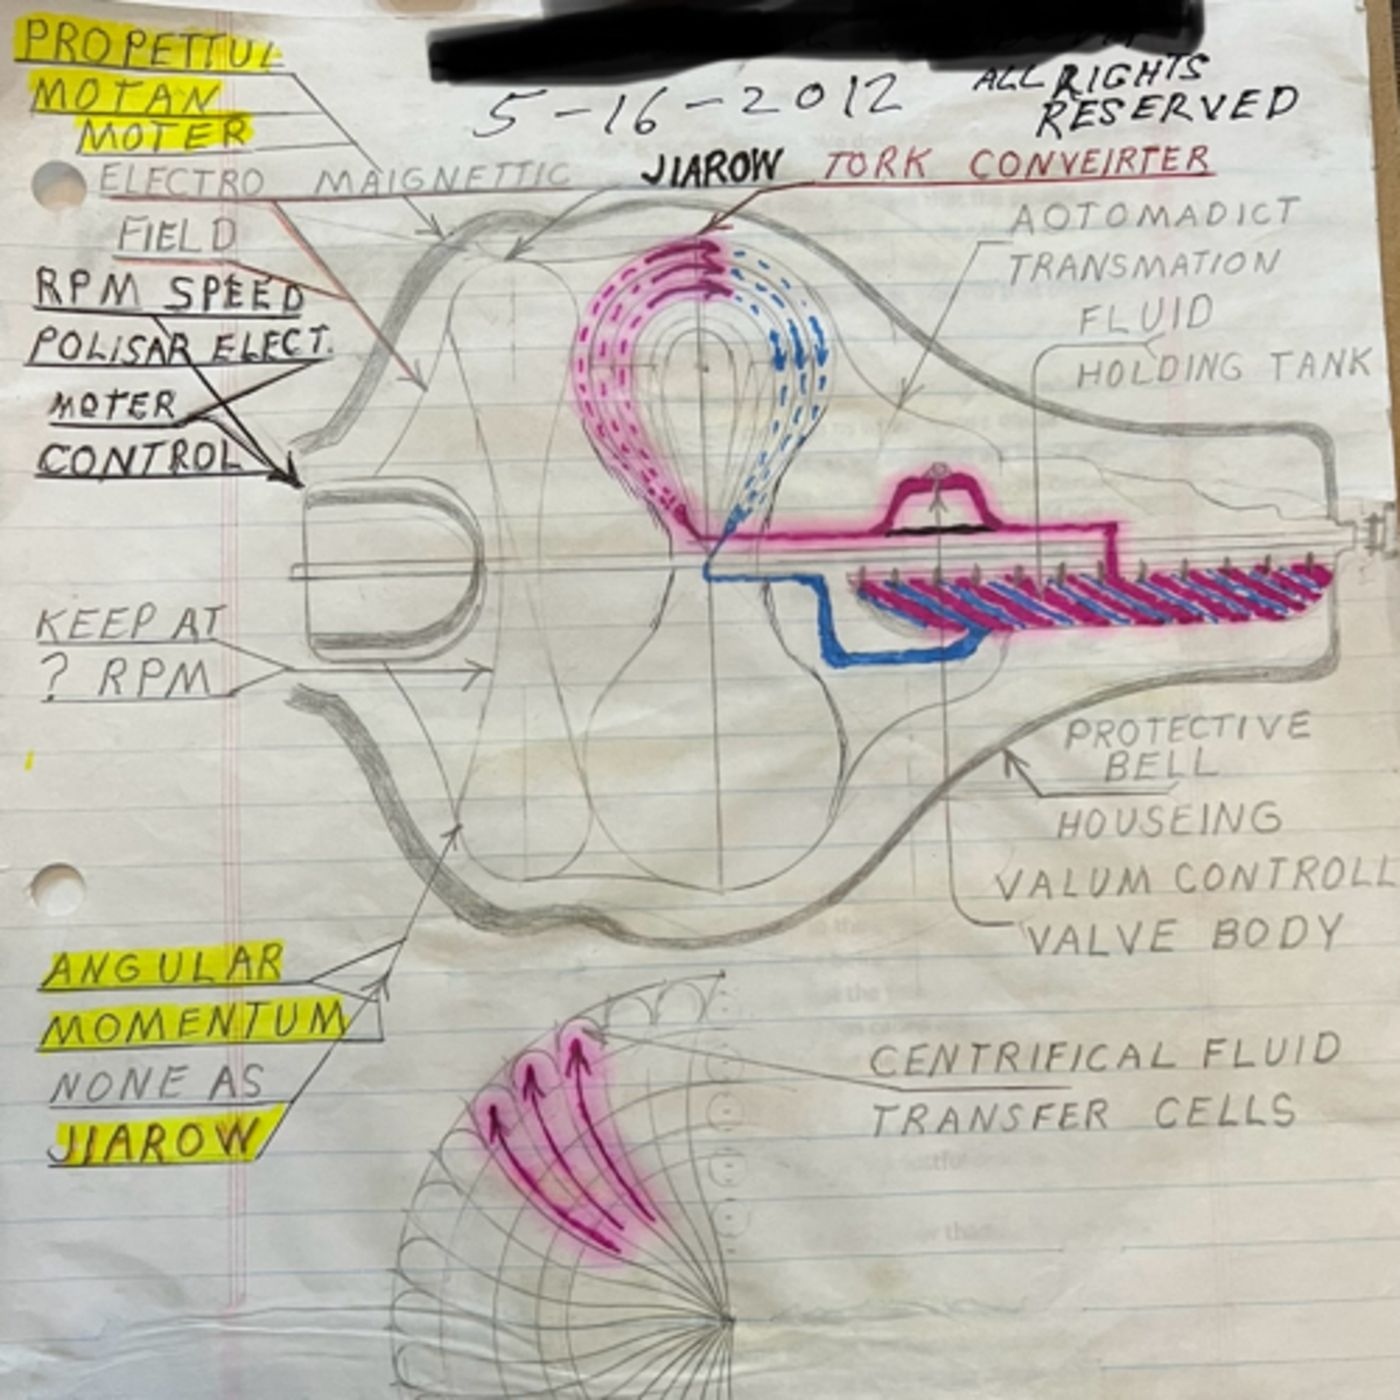 PROPETTUL
MOTAN
MOTER
5-16-2012
ALL RIGHTS
RESERVED
ELECTRO MAIGNETTIC
FIELD
JIAROW TORK CONVEIRTER
RPM SPEED
POLISAR ELECT.
MOTER
CONTROL
AOTOMADICT
TRANSMATION
FLUID
HOLDING TANK
KEEP AT
? RPM
PROTECTIVE
BELL
HOUSEING
VALUM CONTROLL
VALVE BODY
ANGULAR
MOMENTUM
NONE AS
JIAROW
CENTRIFICAL FLUID
TRANSFER CELLS